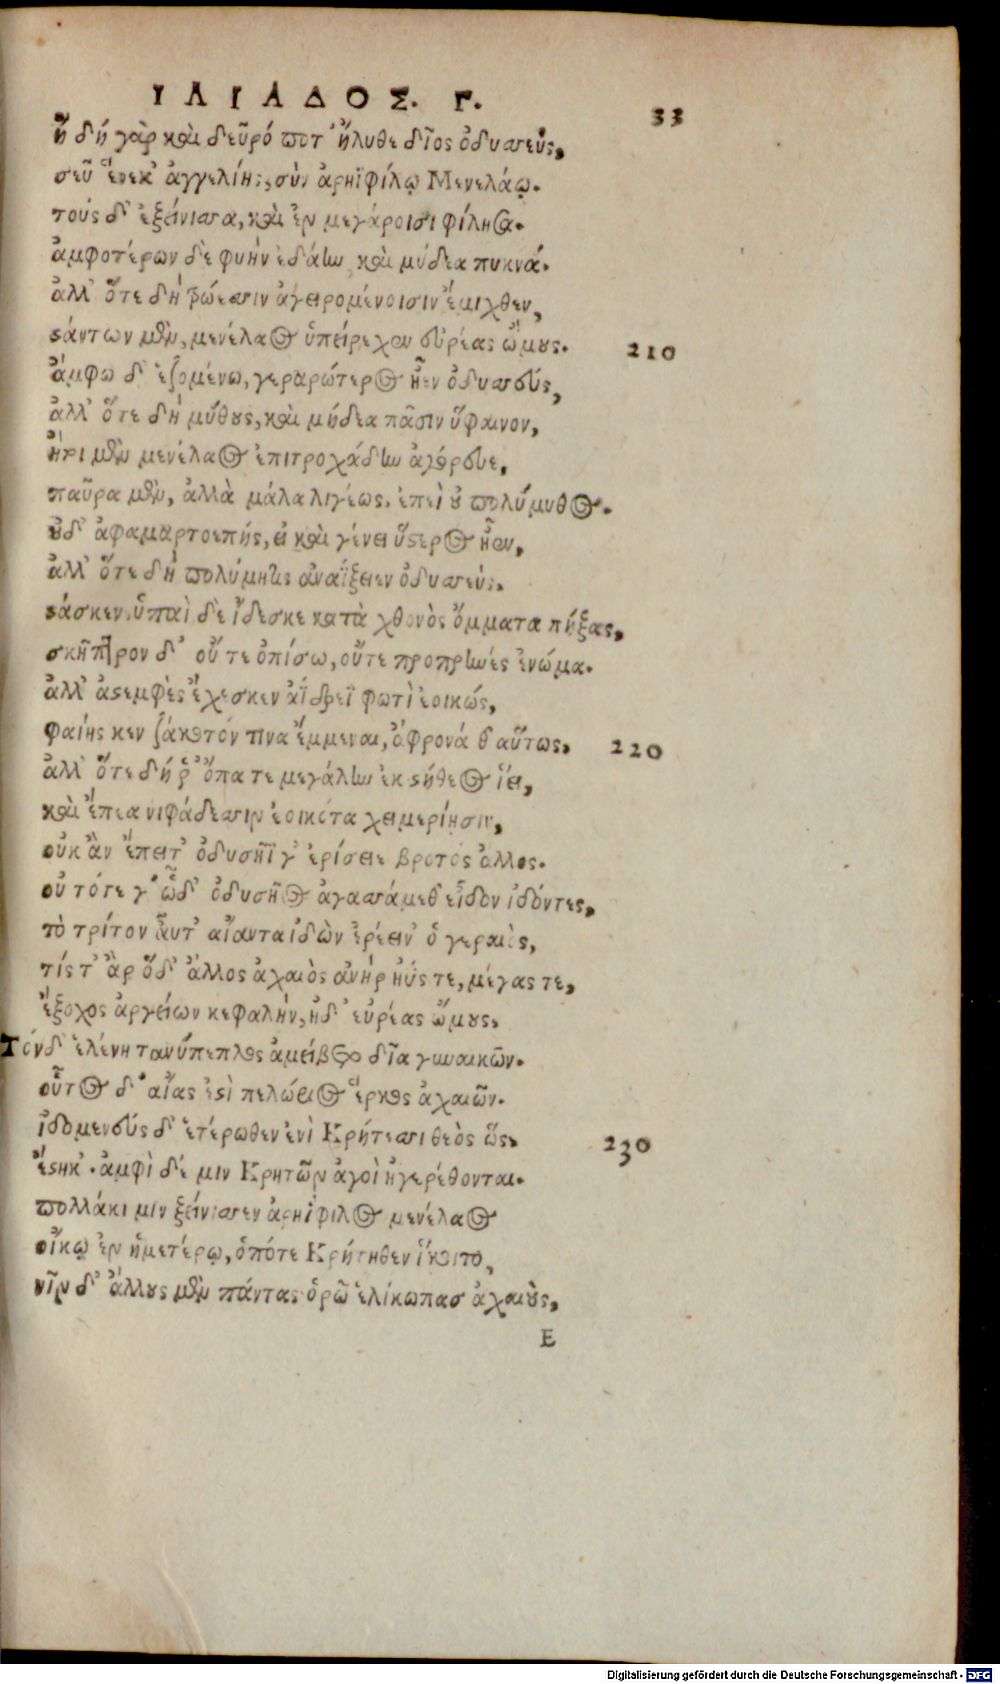 ΙΛΙΑΔΟΣ. Γ.
33
ἤδη γὰρ καὶ δεῦρό ποτ' ἤλυθε δῖος ὀδυσσεύς,
σεῦ ἕνεκ' ἀγγελίης, σὺν ἀρηϊφίλῳ Μενελάῳ.
τοὺς δ' ἐξείνισσα, καὶ ἐν μεγάροισι φίλησα.
ἀμφοτέρων δὲ φυὴν ἐδάην καὶ μήδεα πυκνά.
ἀλλ' ὅτε δὴ τρώεσσιν ἀγειρομένοισιν ἔμιχθεν,
στάντων μὲν, μενέλαος ὑπείρεχεν εὐρέας ὤμους.
210
ἄμφω δ' ἑζομένω, γεραρώτερος ἦεν ὀδυσσεύς,
ἀλλ' ὅτε δὴ μύθους, καὶ μήδεα πᾶσιν ὕφαινον,
ἤτοι μὲν μενέλαος ἐπιτροχάδην ἀγόρευε,
παῦρα μὲν, ἀλλὰ μάλα λιγέως. ἐπεὶ οὐ πολύμυθος.
οὐδ' ἀφαμαρτοεπής, εἰ καὶ γένει ὕστερος ἦεν,
ἀλλ' ὅτε δὴ πολύμητις ἀναΐξειεν ὀδυσσεύς.
στάσκεν. ὑπαὶ δὲ ἴδεσκε κατὰ χθονὸς ὄμματα πήξας,
σκῆπτρον δ' οὔτε ὀπίσω, οὔτε προπρηνὲς ἐνώμα.
ἀλλ' ἀστεμφὲς ἔχεσκεν ἀΐδρεϊ φωτὶ ἐοικώς,
φαίης κεν ζάκοτόν τινα ἔμμεναι, ἄφρονά θ' αὔτως.
220
ἀλλ' ὅτε δή ῥ' ὄπα τε μεγάλην ἐκ στήθεος ἵει,
καὶ ἔπεα νιφάδεσσιν ἐοικότα χειμερίησιν,
οὐκ ἂν ἔπειτ' ὀδυσῆϊ γ' ἐρίσειε βροτὸς ἄλλος.
οὐ τότε γ' ὧδ' ὀδυσῆος ἀγασσάμεθ' εἶδον ἰδόντες,
τὸ τρίτον αὖτ' αἴαντα ἰδὼν ἐρέειν' ὁ γεραιὸς,
τίς τ' ἂρ ὅδ' ἄλλος ἀχαιὸς ἀνὴρ ἠΰς τε, μέγας τε,
ἔξοχος ἀργείων κεφαλὴν, ἠδ' εὐρέας ὤμους.
Τόνδ' ἑλένη τανύπεπλος ἀμείβετο δῖα γυναικῶν.
οὗτος δ' αἴας ἐστὶ πελώριος ἕρκος ἀχαιῶν.
ἰδομενεύς δ' ἑτέρωθεν ἐνὶ Κρήτεσσι θεὸς ὥς.
230
ἕστηκ'. ἀμφὶ δέ μιν Κρητῶν ἀγοὶ ἠγερέθονται.
πολλάκι μιν ξείνισσεν ἀρηΐφιλος μενέλαος
οἴκῳ ἐν ἡμετέρῳ, ὁπότε Κρήτηθεν ἵκοιτο,
νῦν δ' ἄλλους μὲν πάντας ὁρῶ ἑλίκωπασ ἀχαιοὺς,
E
Digitalisierung gefördert durch die Deutsche Forschungsgemeinschaft - DFG